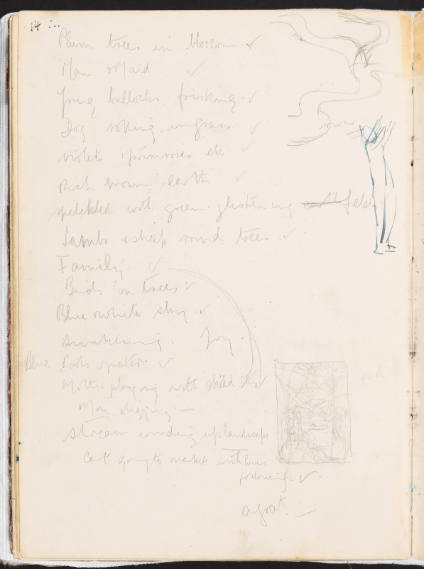 14
Plum trees in blossom ✓
Man & Maid ✓
Young bullocks frisking ✓
Dog rolling in grass ✓
violets & primroses etc ✓
Rich brown earth ✓
speckled with green glistening fields
Lambs & sheep round trees ✓
Family ✓
Birds in trees ✓
Blue & white sky ✓
awakening. Joy.
Blue
Mother playing with child ✓
Man digging —
Stream winding up landscape
Cart going to market with
✓
a goat. —